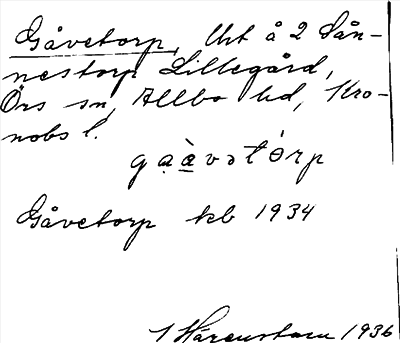 Gåvetorp, Urt å 2 Sån-
nestorp Lillegård,
Örs sn, Allbo hd, Kro-
nobs l.
ga̠à̠vətórp
Gåvetorp kb 1934
1936